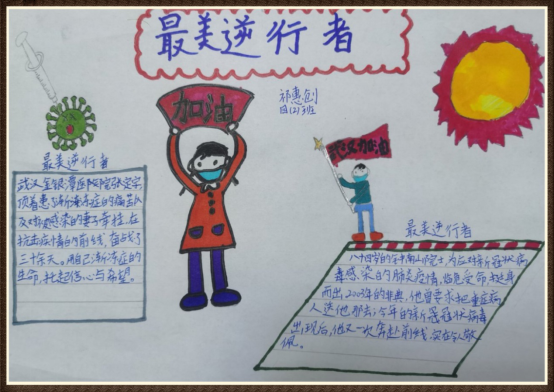 最美逆行者
加油
祁惠创
四(2)班
武汉加油
最美逆行者
武汉金银潭医院院长张定宇,
顶着患与渐冻症的痛苦以
及妻感染的重重牵挂,在
抗击疫情的前线,奋战了
三十余天。用自己渐冻症的
生命,托起信心与希望。
最美逆行者
八十四岁的钟南山院士,为应对新冠状病
毒感染的肺炎疫情,临危受命,挺身
而出,2003年的非典,他曾要求把重症病
人送他那去;今年的新冠状病毒
出现后,他又一次奔赴前线,实在令人敬
佩。